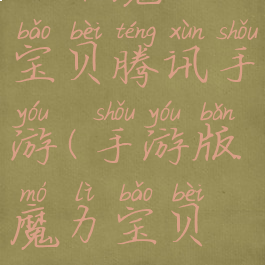 bǎo bèi téng xùn shǒu
宝贝腾讯手
yóu shǒu yóu bǎn
游(手游版
mó lì bǎo bèi
魔力宝贝